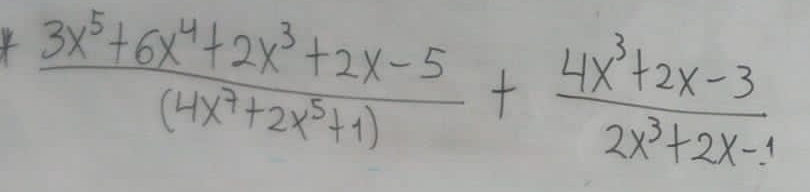 * 3x⁵+6x⁴+2x³+2x-5 + 4x³+2x-3
(4x⁷+2x⁵+1) 2x³+2x-1